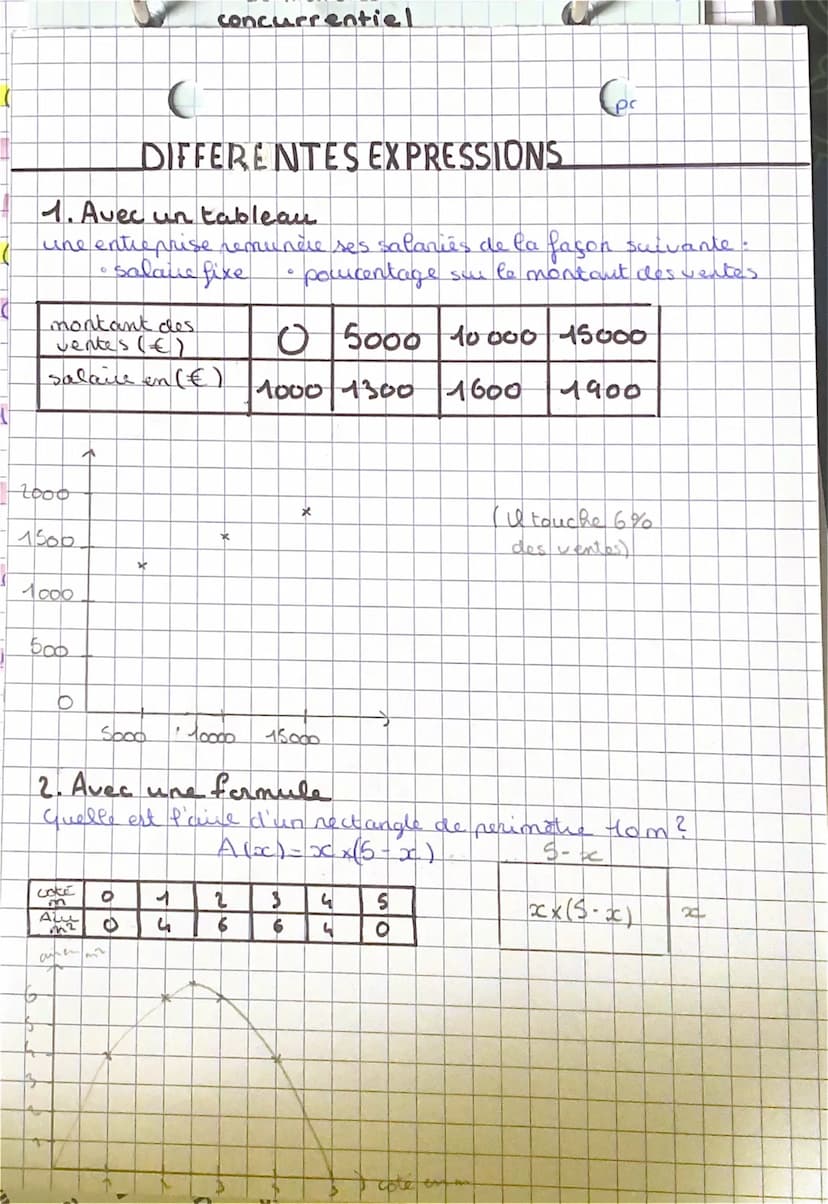 concurrentiel
pc
DIFFERENTES EXPRESSIONS
1. Avec un tableau
une entreprise remunère ses salariés de la façon suivante :
• salaire fixe • pourcentage sur le montant des ventes
montant des ventes (€) 0 5000 10 000 15000
salaire en (€) 1000 1300 1600 1900
2000
1500
1000
500
0
5000 10000 15000
(Il touche 6%
des ventes)
2. Avec une formule
Quelle est l'aire d'un rectangle de perimètre 10m?
A(x)=x×(5-x)
5-x
x×(5-x) x
coté m 0 1 2 3 4 5
Aire m² 0 4 6 6 4 0
6
5
4
3
2
1
coté en m